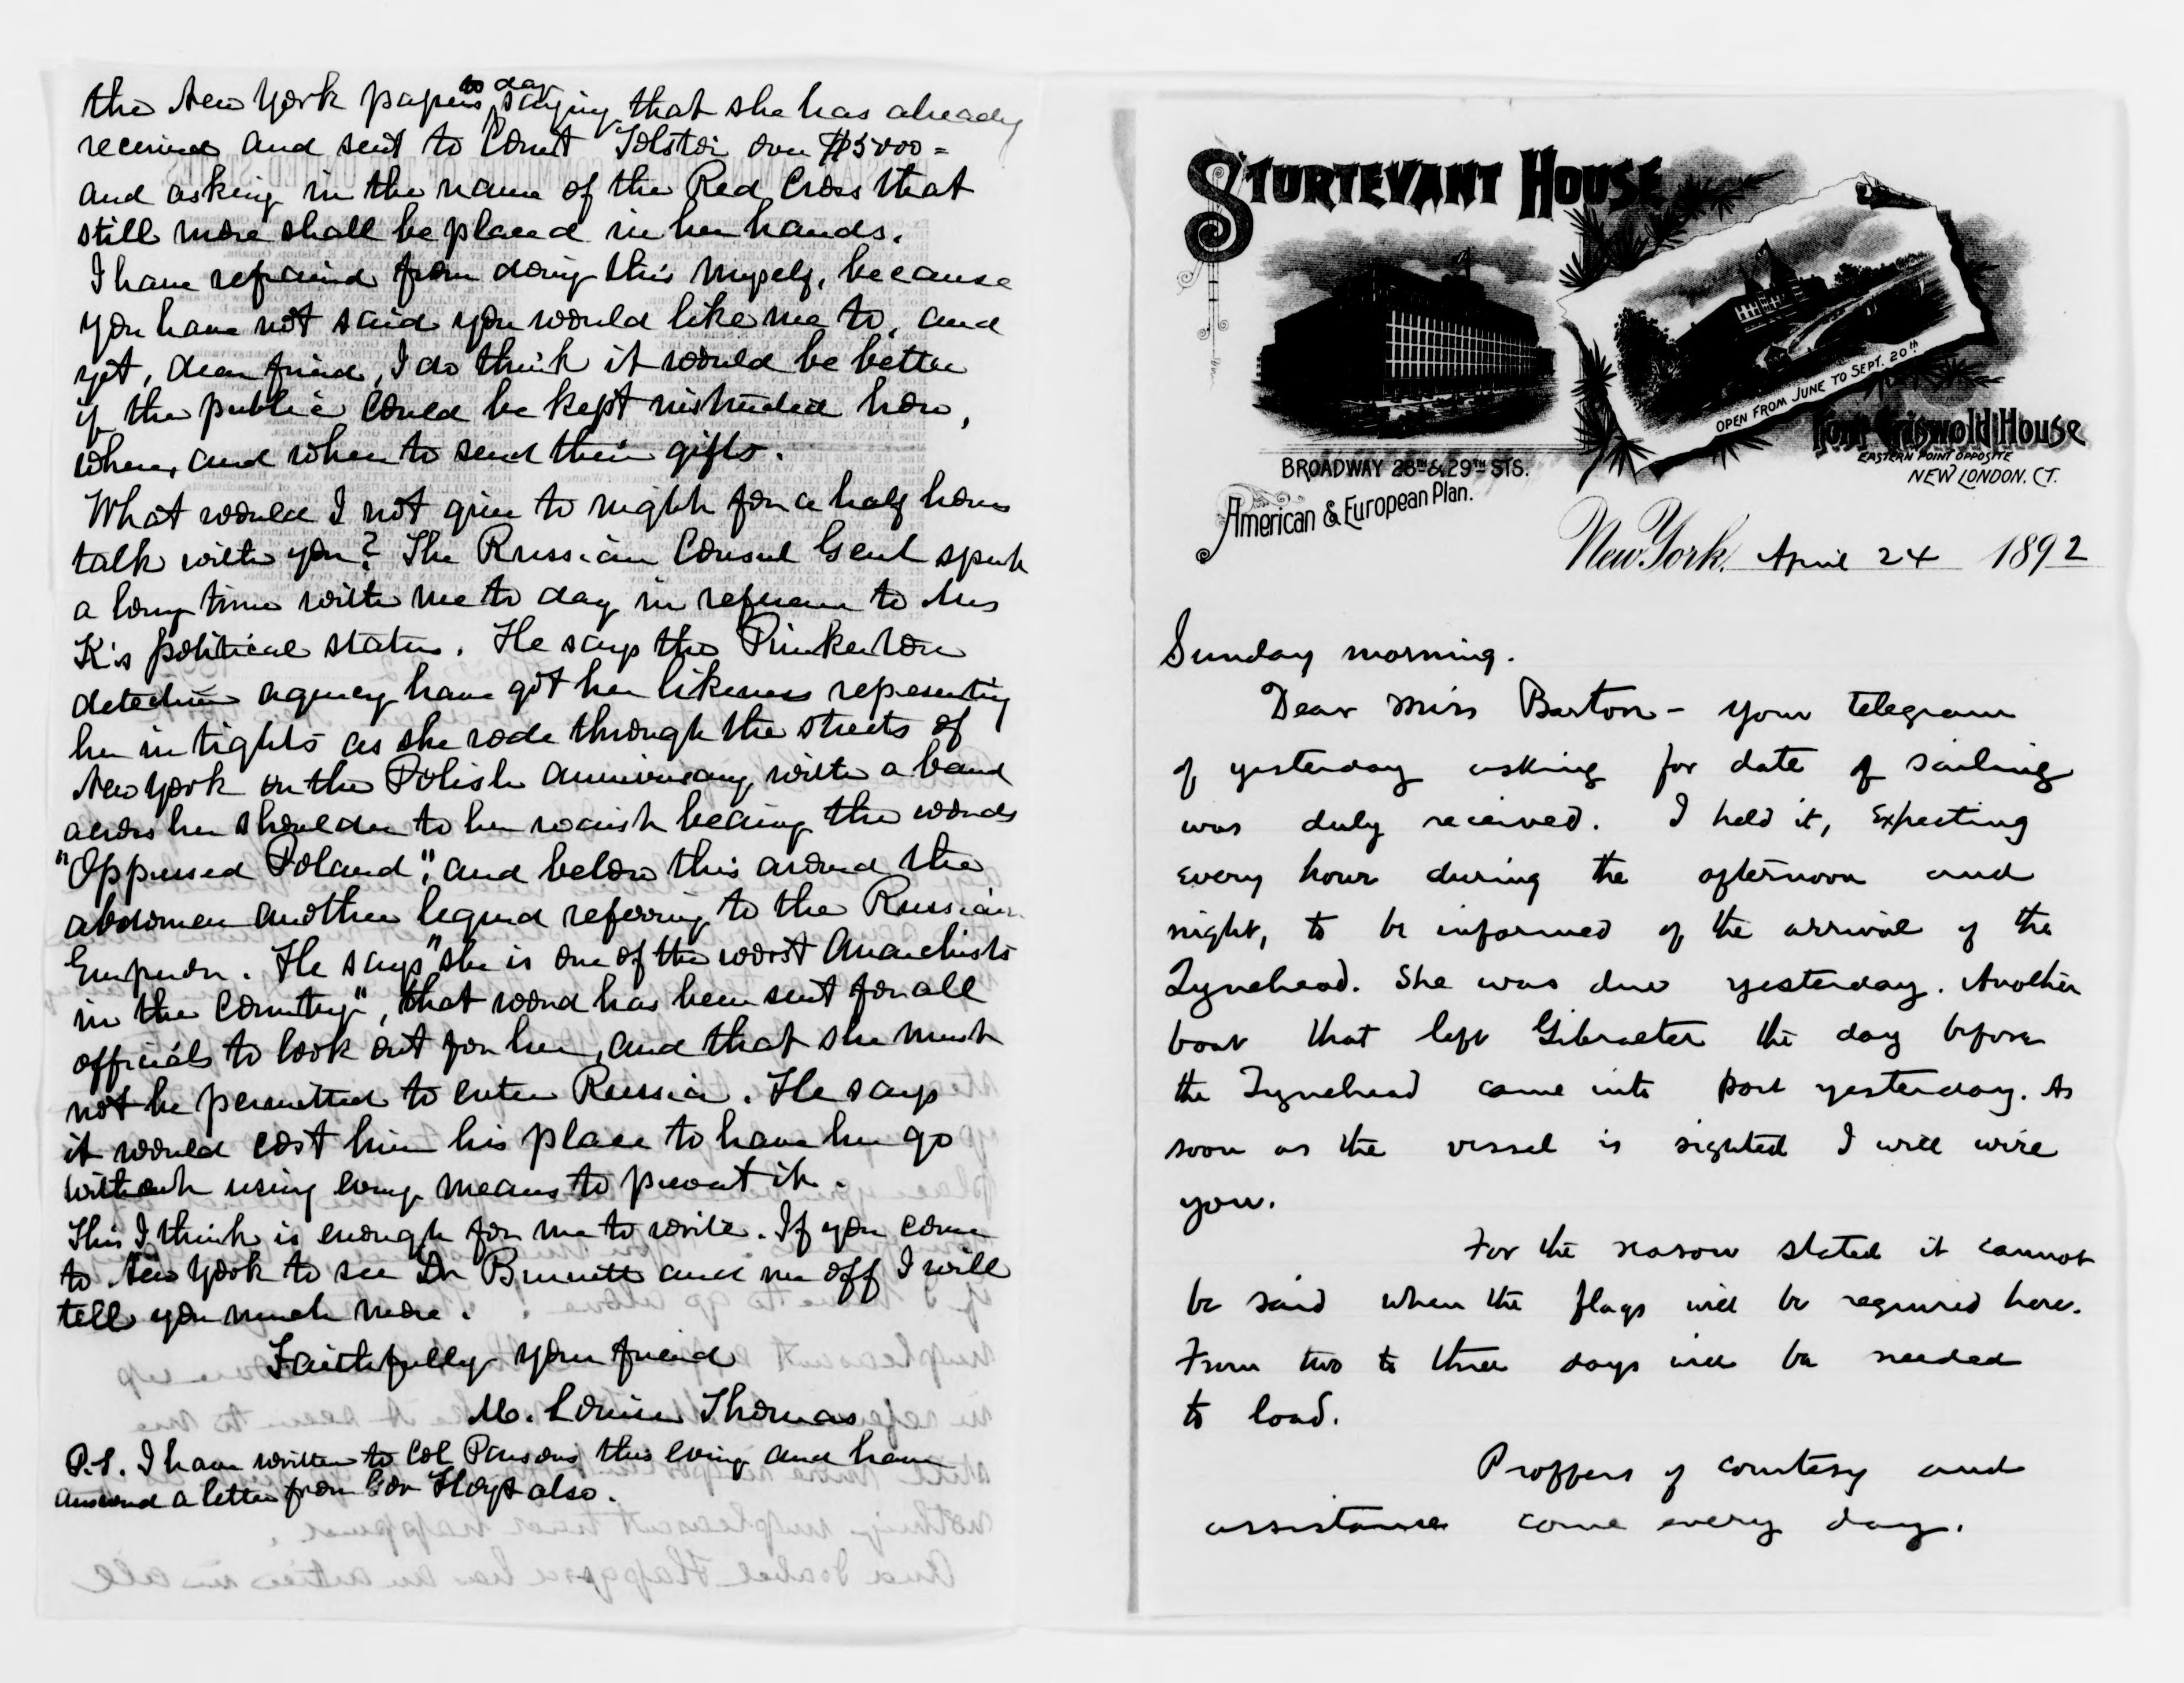 the New York papers to day saying that she has already
received and sent to Count Tolstoi over $5000=
and asking in the name of the Red Cross that
still more shall be placed in her hands.
I have refraind from doing this myself, because
you have not said you would like me to, and
yet, dear friend, I do think it would be better
if the public could be kept instructed how,
where, and when to send their gifts.
What would I not give to night for a half hours
talk with you? The Russian Consul Genl spent
a long time with me to day in reference to Mrs
K's political status. He says the Pinkerton
detective agency have got her likeness representing
her in tights as she rode through the streets of
New York on the Polish anniversary, with a band
across her shoulder to her waist bearing the words
"Oppressed Poland", and below this around the
abdomen another legend referring to the Russian
Emperor. He says "she is one of the worst Anarchists
in the Country", that word has been sent for all
officials to look out for her, and that she must
not be permitted to enter Russia. He says
it would cost him his place to have her go
without using every means to prevent it.
This I think is enough for me to write. If you come
to New York to see Dr and me off I will
tell you much more.
Faithfully your friend
M. Louise Thomas
P.S. I have written to Col Parsons this evening and have
answered a letter from Gov Hoyt also.
STURTEVANT HOUSE
BROADWAY 28TH & 29TH STS.
American & European Plan.
OPEN FROM JUNE TO SEPT. 20TH
Fort Griswold House
EASTERN POINT OPPOSITE
NEW LONDON, CT.
New York, April 24 1892
Sunday morning.
Dear Miss Barton – your telegram
of yesterday asking for date of sailing
was duly received. I held it, expecting
every hour during the afternoon and
night, to be informed of the arrival of the
Tynehead. She was due yesterday. Another
boat that left Gibraeter the day before
the Tynehead came into port yesterday. As
soon as the vessel is sighted I will wire
you.
For the reason stated it cannot
be said when the flags will be required here.
From two to three days will be needed
to load.
Proffers of courtesy and
assistance come every day.